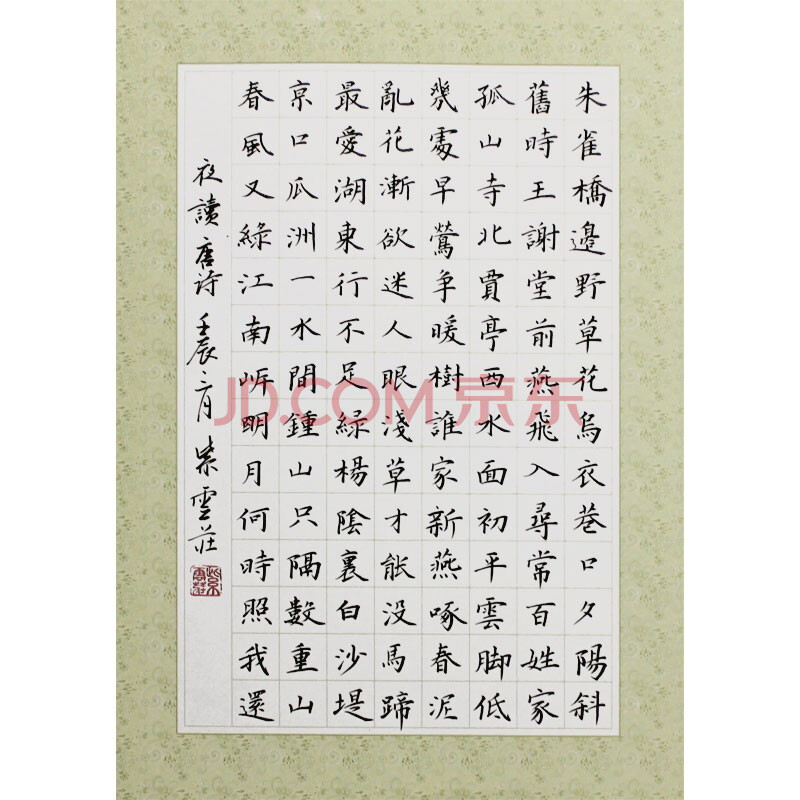 朱雀橋邊野草花烏衣巷口夕陽斜
舊時王謝堂前燕飛入尋常百姓家
孤山寺北賈亭西水面初平雲脚低
幾處早鶯争暖樹誰家新燕啄春泥
亂花漸欲迷人眼淺草才能没馬蹄
最愛湖東行不足綠楊陰裏白沙堤
京口瓜洲一水間鍾山只隔數重山
春風又綠江南岸明月何時照我還
夜讀唐诗 壬辰月 紫雲莊
JD.COM 京东